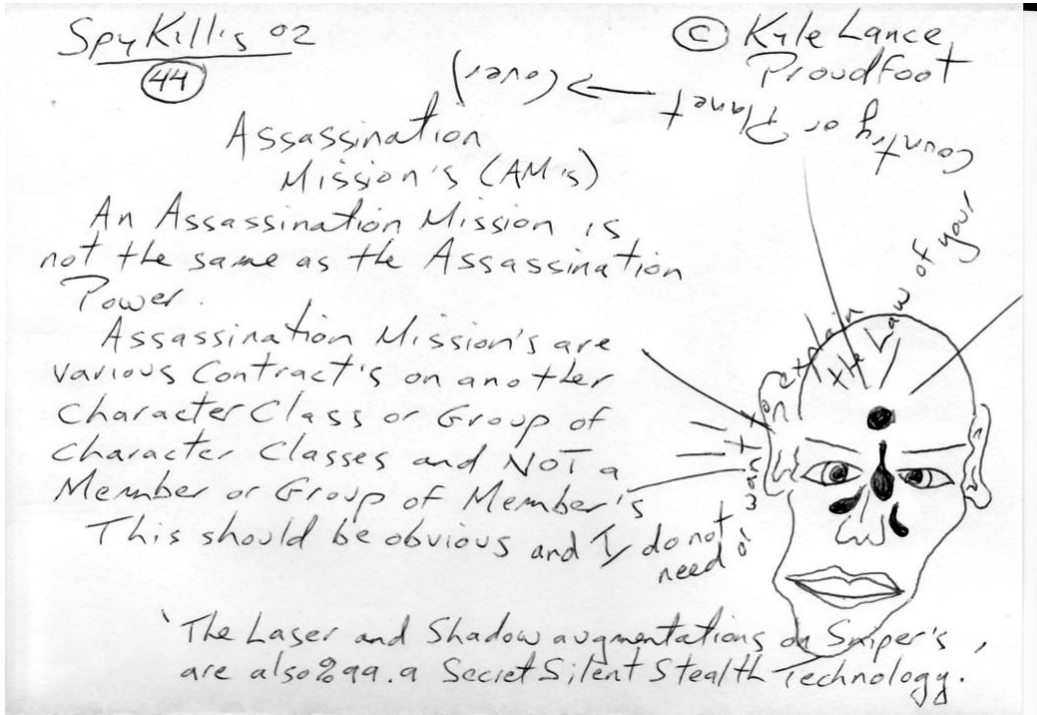 SpyKill's 02
44
© Kyle Lance
Proudfoot
Assassination
Mission's (AM's)
An Assassination Mission is
not the same as the Assassination
Power.
Assassination Mission's are
various Contract's on another
Character Class or Group of
Character Classes and NOT a
Member or Group of Member's
This should be obvious and I do not
need or want to explain the Law of your
Country or Planet → (over)
'The Laser and Shadow augmentations on Sniper's,
are also %99.9 Secret Silent Stealth Technology.